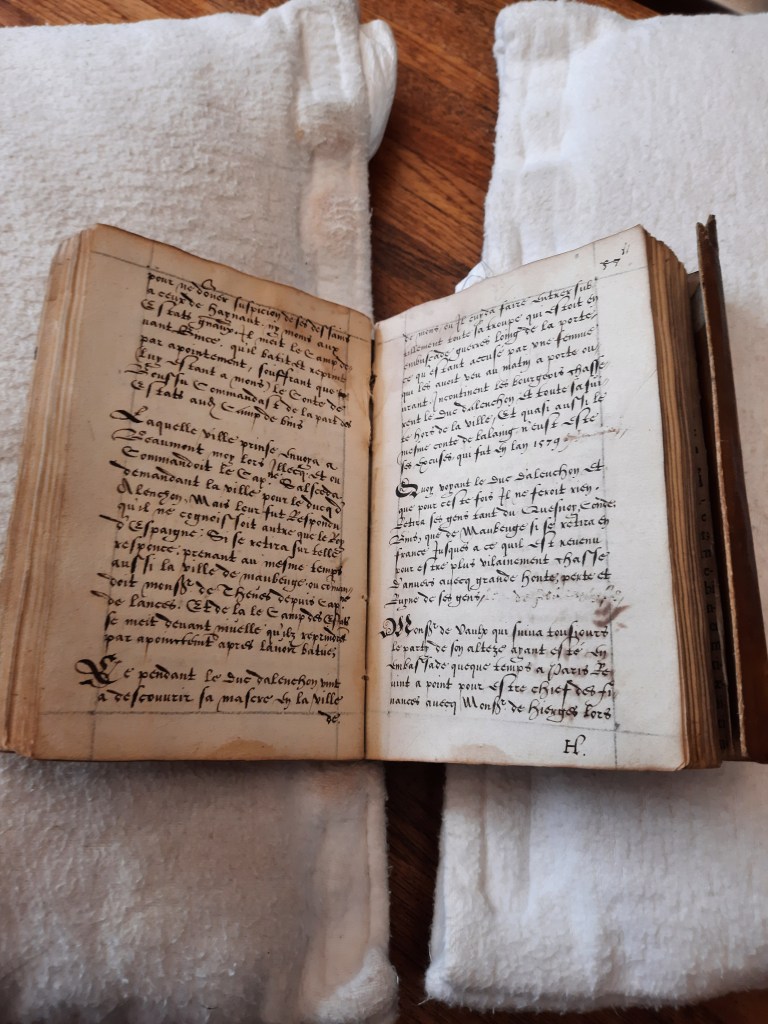 pour ne doner suspicion de ses dessains
a ceux de Haynaut. ny moins aux
Estats gnaux. Il meit le Camp de
vant Bince, qu'il batit et reprint
par apointement, souffrant que
luy estant a mons) le Conte de
Bossu Commandast de la part des
Estats aud Camp de bins
Laquelle ville prinse envoya a
Beaumont moy lors Illecq et ou
Commandoit le Cap.ne Salseda
demandant la ville pour le ducq d
Alenchon, Mais leur fut Respondu
qu'il ne cognoissoit autre que le Roy
d'Espaigne. Si se retira sur telle
responce, prenant au mesme temps
aussi la ville de maubeuge ou coman
doit monsr. de Thenes depuis Cap.ne
de lances. Et de la le Camp des Estats
se meit devant nivelle qu'ilz reprinrent
par apointeint apres lavoir batuez
Ce pendant le Duc dalenchon vint
a descouvrir sa mascre en la ville
de
57
de mons, ou Il cuyda faire entrer sub
tillement toute sa troupe qui estoit en
embuscade gueres loing de la porte,
ce qu'estant accusé par une femme
qui les avoit veu au matin a porte ou
vrant, incontinent les bourgeois chasse
rent le Duc dalenchon et toute sa sui
te hors de la ville, Et quasi aussi le
mesme conte de lalaing n'eust esté
ses excuses, qui fut en lan 1579
Quoy voyant le Duc dalenchon Et
que pour ceste fois Il ne feroit rien,
Retira ses gens tant du Quesnoy, Conde,
Bins, que de Maubeuge si se retira en
france Jusques a ce quil est revenu
pour estre plus vilainement chassé
d'anvers avecq grande honte, perte et
Ruyne de ses gens,
Monsr. de Vaulx qui suiva tousjours
le party de son alteze ayant esté en
embassade quecque temps a Paris Re
vint a point pour estre chief des fi
nances avecq Monsr. de hierges lors
H.